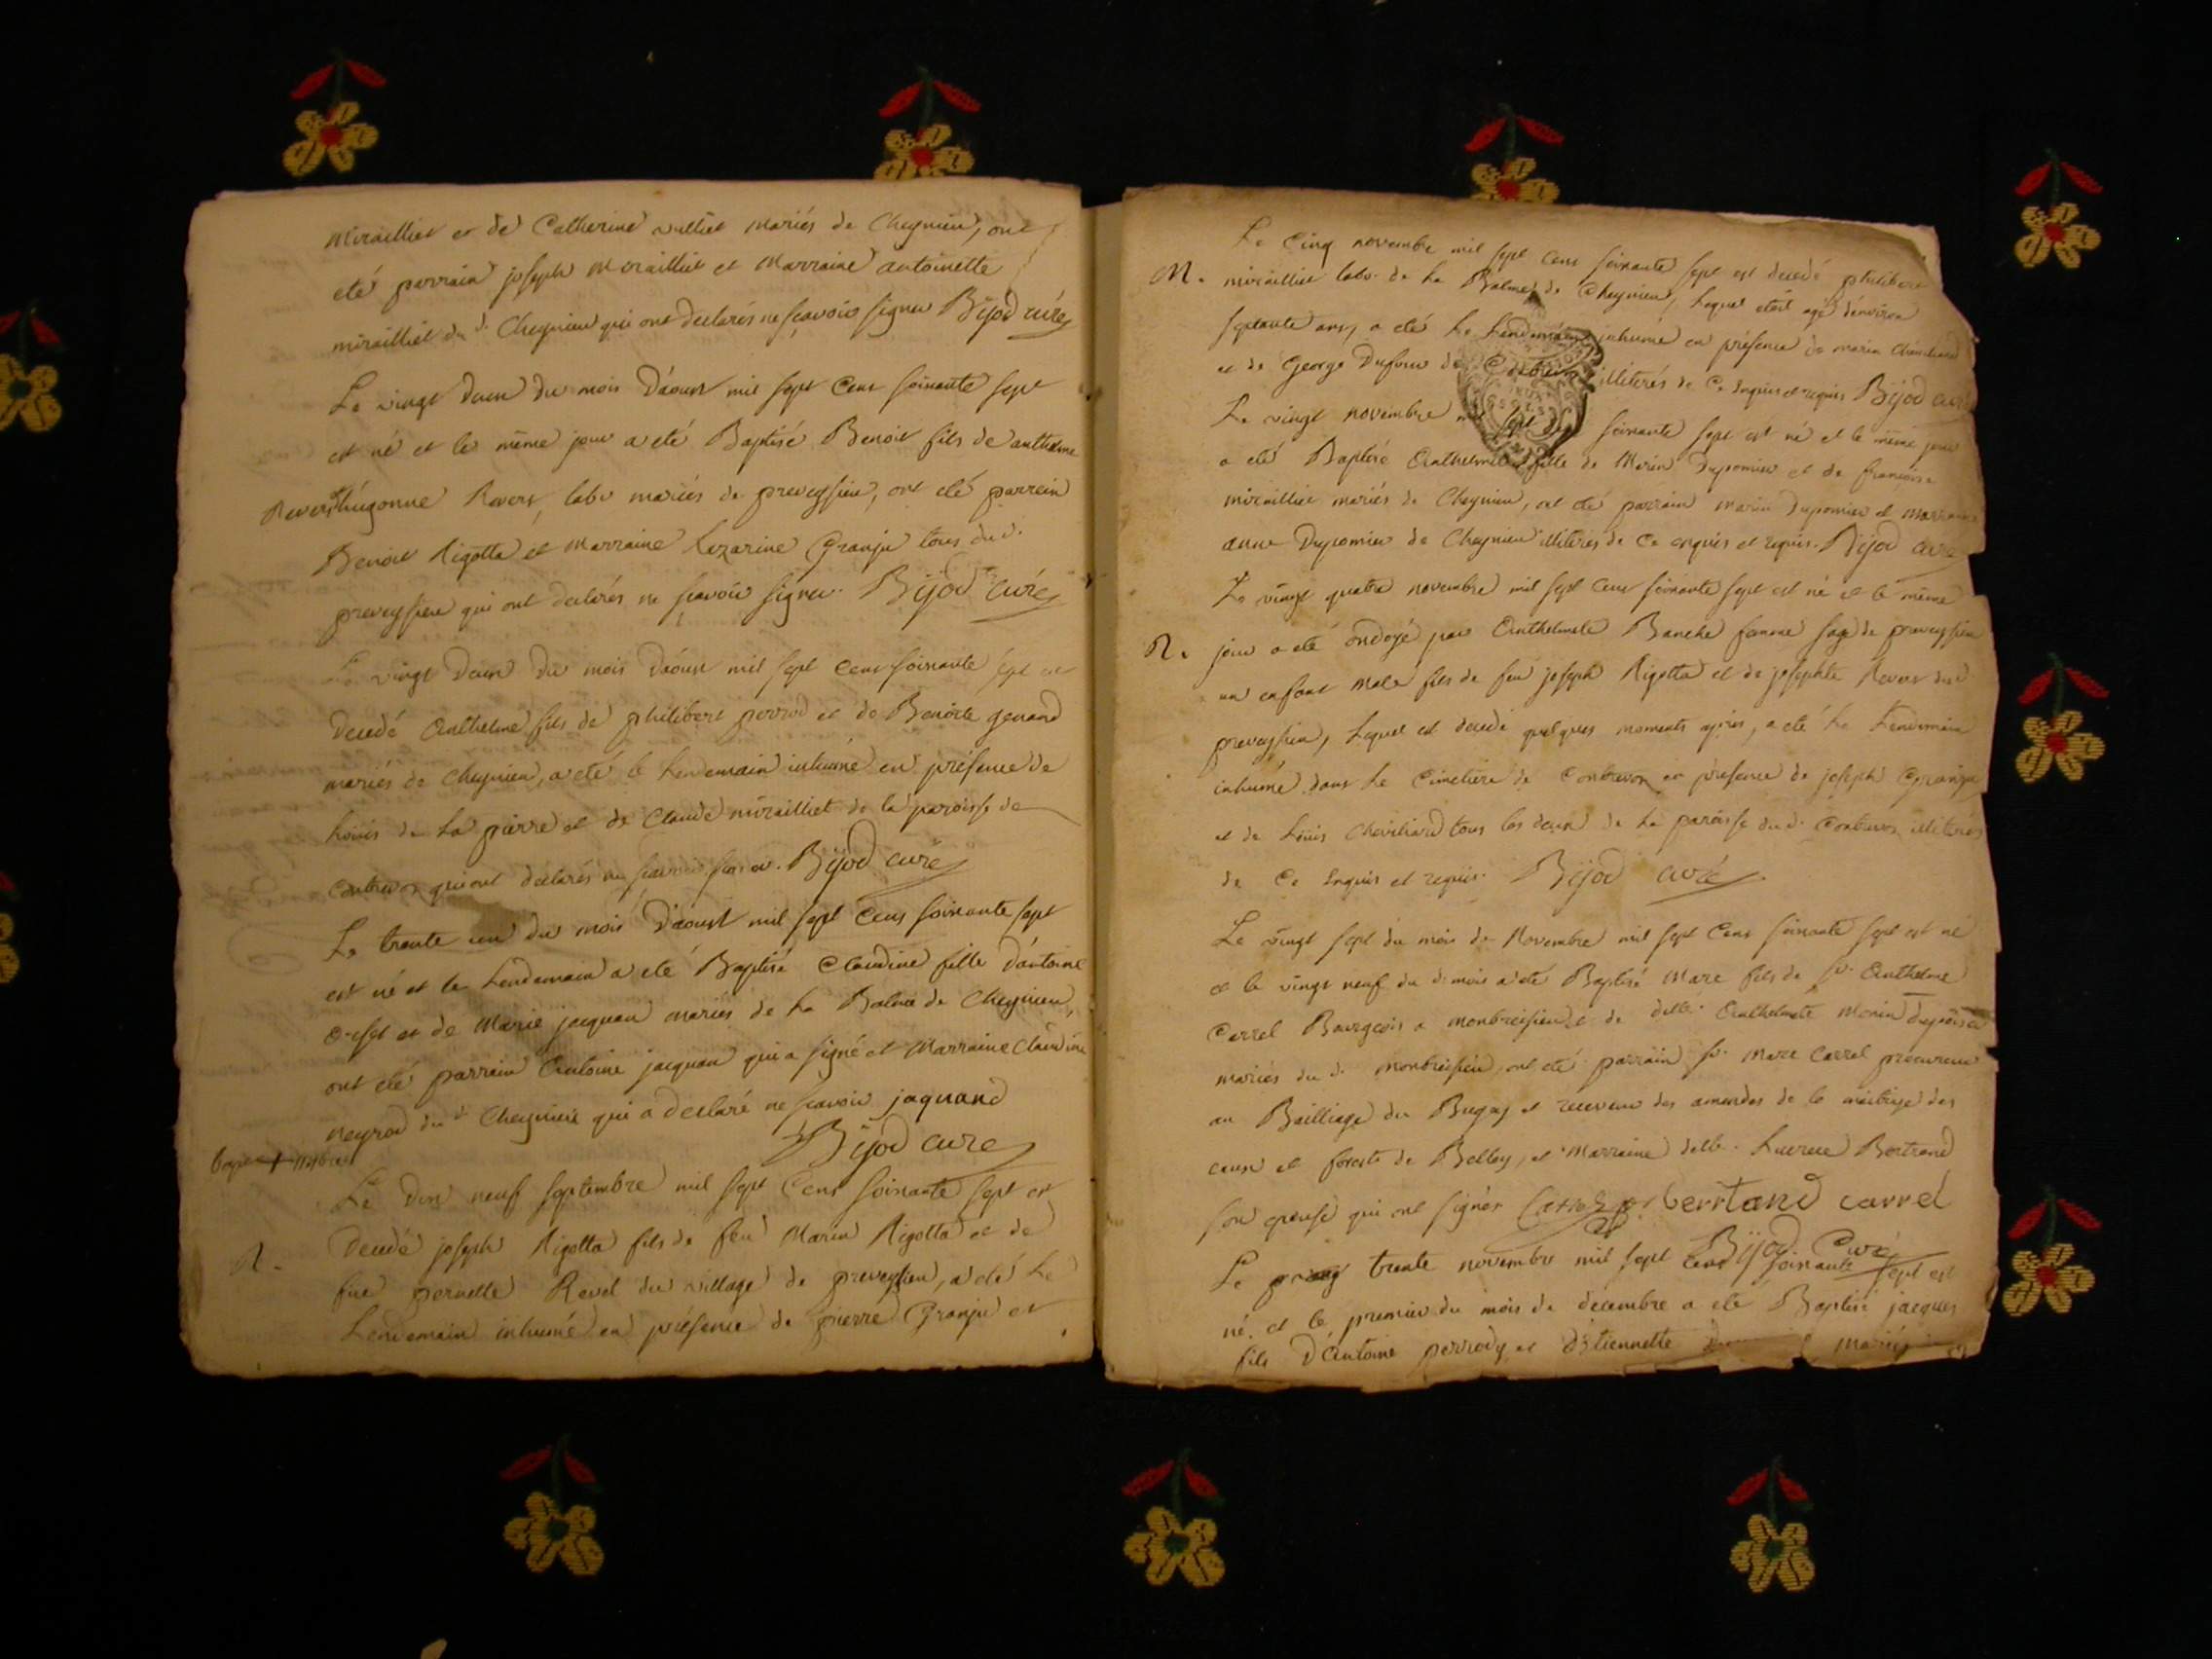 Mirailliet et de Catherine vulliet mariés de Cheynieu, ont
eté parrain joseph Mirailliet et Marraine antoinette
mirailliet du d. Cheynieu qui ont declarés ne sçavoir signer Bijod curé
Le vingt deux du mois d'aoust mil sept cent soixante sept
est né et le même jour a eté Baptisé Benoit fils de anthelme
Revers, labr mariés de preveyssieu, ont eté parrein
Benoit Rigotta et Marraine Lazarine Granju tous du d.
preveyssieu qui ont declarés ne sçavoir signer. Bijod curé
Le vingt deux du mois d'aoust mil sept cent soixante sept est
decedé Anthelme fils de philibert perrod et de Benoite genand
mariés de Cheynieu, a eté le Lendemain inhumé en présence de
Loüis de La pierre et de Claude mirailliet de la paroisse de
Contrevoz qui ont declarés ne sçavoir signer. Bijod curé
Le trente un du mois d'aoust mil sept cens soixante sept
est né et le Lendemain a eté Baptisé Claudine fille d'antoine
et de Marie jacquan mariés de La Balme de Cheynieu,
ont eté parrain Antoine jacquan qui a signé et Marraine Claudine
neyrod du d. Cheynieu qui a declaré ne sçavoir jaquand
Bijod curé
Le dix neuf septembre mil sept cens soixante sept est
R. decedé joseph Rigotta fils de feu Marin Rigotta et de
füe pernette Revel du village de preveyssieu, a eté Le
Lendemain inhumé en présence de pierre Granju et
Le Cinq novembre mil sept cens soixante sept est decedé philibert
M. mirailliet labr. de La Balme de Cheynieu, Lequel etoit agé d'environ
septante ans, a eté Le Lendemain inhumé en présence de marin Chevillard
et de George Dufour de illiterés de Ce Enquis et requis Bijod curé
Le vingt novembre mil sept soixante sept est né et le même jour
a eté Baptisé Anthelmette fille de Marin Dupomieu et de françoise
mirailliet mariés de Cheynieu, ont eté parrain marin Dupomieu et marraine
anne Dupomieu de Cheynieu illiterés de Ce enquis et requis. Bijod curé
Le vingt quatre novembre mil sept cens soixante sept est né et le même
R. jour a eté ondoyé par Anthelmete Banche femme sage de preveyssieu
un enfant Male fils de feu joseph Rigotta et de josephte Revers dud
preveyssieu, Lequel est decedé quelques moments après, a eté Le Lendemain
inhumé dans Le Cimetière de Contrevoz en présence de joseph Granju
et de Loüis Chevillard tous les deux de La paroisse du d. Contrevoz illiterés
de Ce Enquis et requis. Bijod curé
Le vingt sept du mois de Novembre mil sept Cens soixante sept est né
et le vingt neuf du d. mois a eté Baptisé Marc fils de sr. Anthelme
Carrel Bourgeois a montbreisieu et de delle. Anthelmete Monin
mariés du d. montbreisieu, ont eté parrain sr. Marc Carrel procureur
au Bailliage du Bugey et receveur des amendes de la maitrise des
eaux et forests de Belley, et Marraine delle. Lucrece Bertrand
son epouse qui ont signés Carrel berrtand carrel
Bijod Curé
Le trente novembre mil sept cens soixante sept est
né. et le premier du mois de decembre a eté Baptisé jacques
fils D'Antoine perrody et d'Etiennette mariés